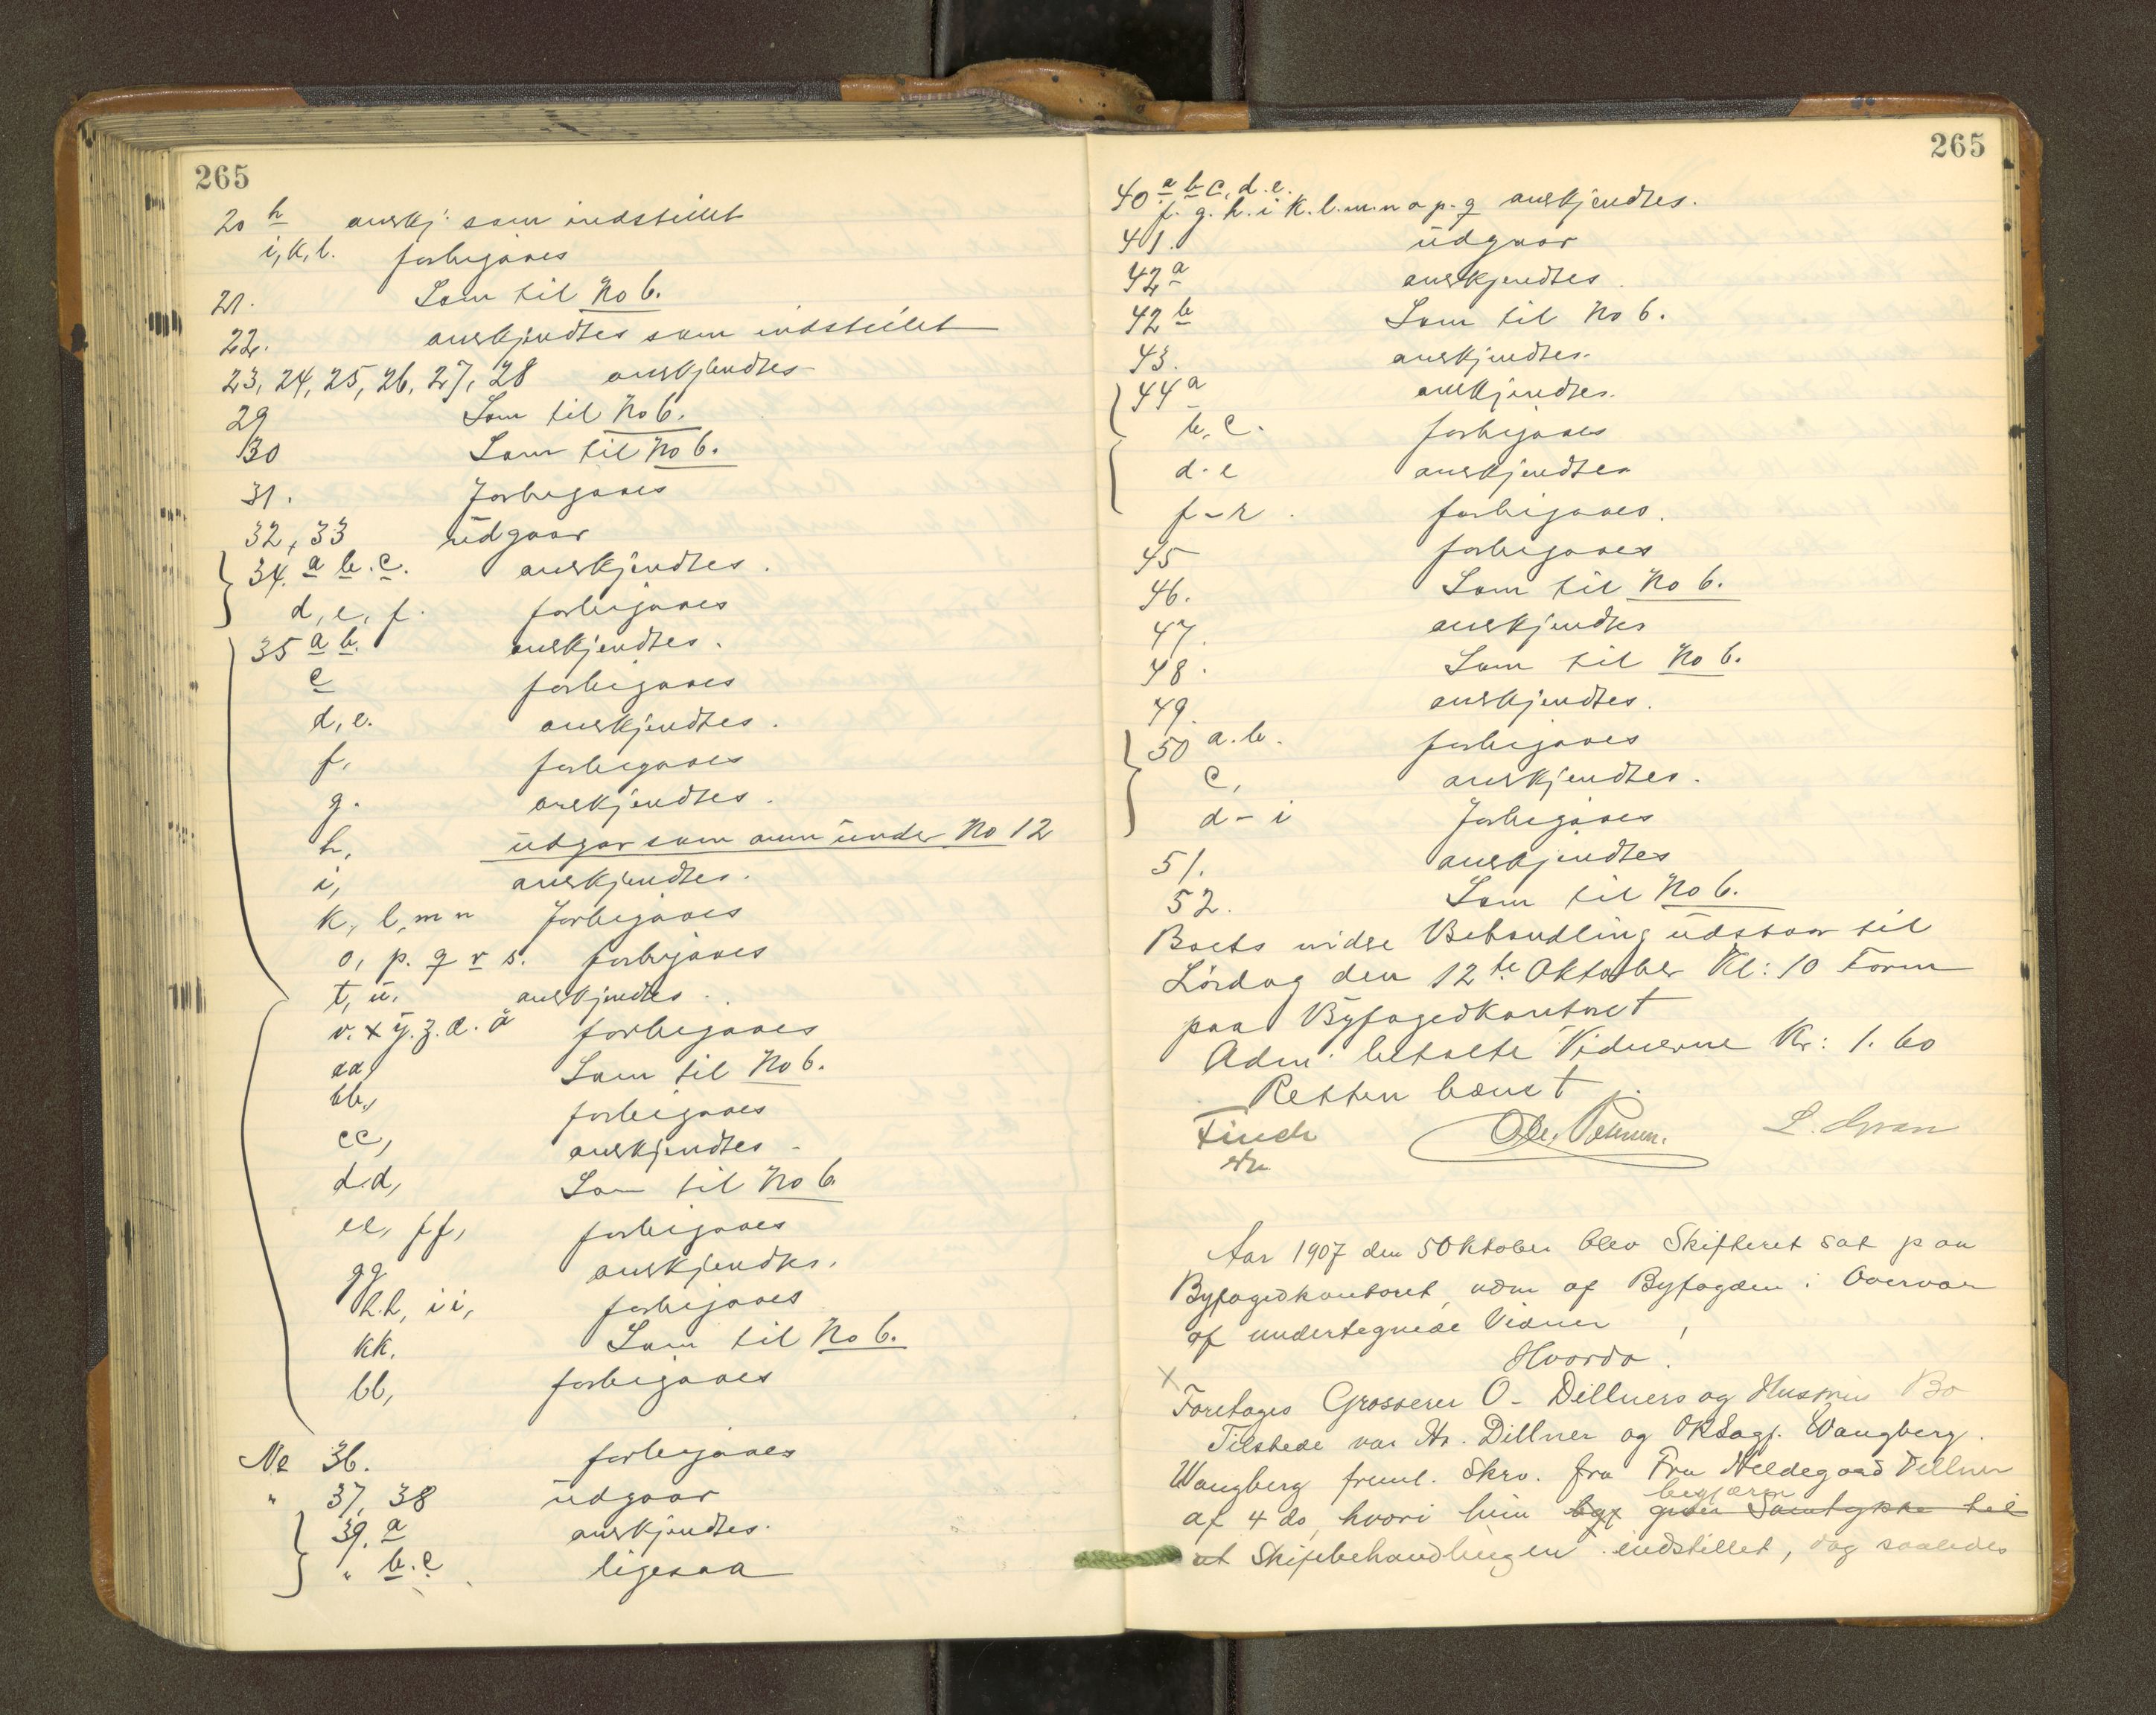 265
20 h anerkj: som indstillet
i, k, l. forbigaaes
21. Som til No 6.
22. anerkjendtes som indstillet
23, 24, 25, 26, 27, 28 anerkjendtes
29 Som til No 6.
30 Som til No 6.
31. Forbigaaes
32, 33 udgaar
34. a b. c. anerkjendtes.
d, e, f. forbigaaes
35 a b. anerkjendtes.
c forbigaaes
d, e. anerkjendtes.
f, forbigaaes
g. anerkjendtes.
h, udgaar som anm under No 12
i, anerkjendtes.
k, l, m n Forbigaaes
o, p. q r s. forbigaaes
t, u. anerkjendtes.
v. x y. z. æ. å forbigaaes
aa, Som til No 6.
bb, forbigaaes
cc, anerkjendtes
d.d, Som til No 6
ee, ff, forbigaaes
gg anerkjendtes.
h.h, ii, forbigaaes
kk. Som til No 6.
ll, forbigaaes
No 36. forbigaaes
" 37, 38 udgaar
39. a anerkjendtes.
" b. c ligesaa
265
40 a b c, d. e.
f. g. h. i k. l. m. n o p. q anerkjendtes.
41. udgaar
42 a anerkjendtes.
42 b Som til No 6.
43. anerkjendtes.
44 a anerkjendtes.
b, c. forbigaaes
d. e anerkjendtes
f - r. forbigaaes.
45 forbigaaes
46. Som til No 6.
47. anerkjendtes
48. Som til No 6.
49. anerkjendtes.
50 a. b. forbigaaes
c, anerkjendtes.
d - i Forbigaaes
51. anerkjendtes
52. Som til No 6.
Boets vidre Behandling udstaar til
Lördag den 12te Oktober Kl: 10 Form
paa Byfogedkontoret
Adm: betalte Vidnerne Kr: 1. 60
Retten hævet.
Finch
Ole Pettersen. L.
Aar 1907 den 5 Oktober blev Skifteret sat paa
Byfogedkontoret, adm af Byfogden i Overvær
af undertegnede Vidner,
Hvorda!
x
Foretages Grosserer O. Dillners og Hustrus Bo
Tilstede var Hr. Dillner og ORSagf. Wangberg.
Wangberg freml. Skrv. fra Fru Hildegard Dillner
begjærer
af 4 ds, hvori hun giver Samtykke til
at Skiftebehandlingen indstillet, dog saaledes